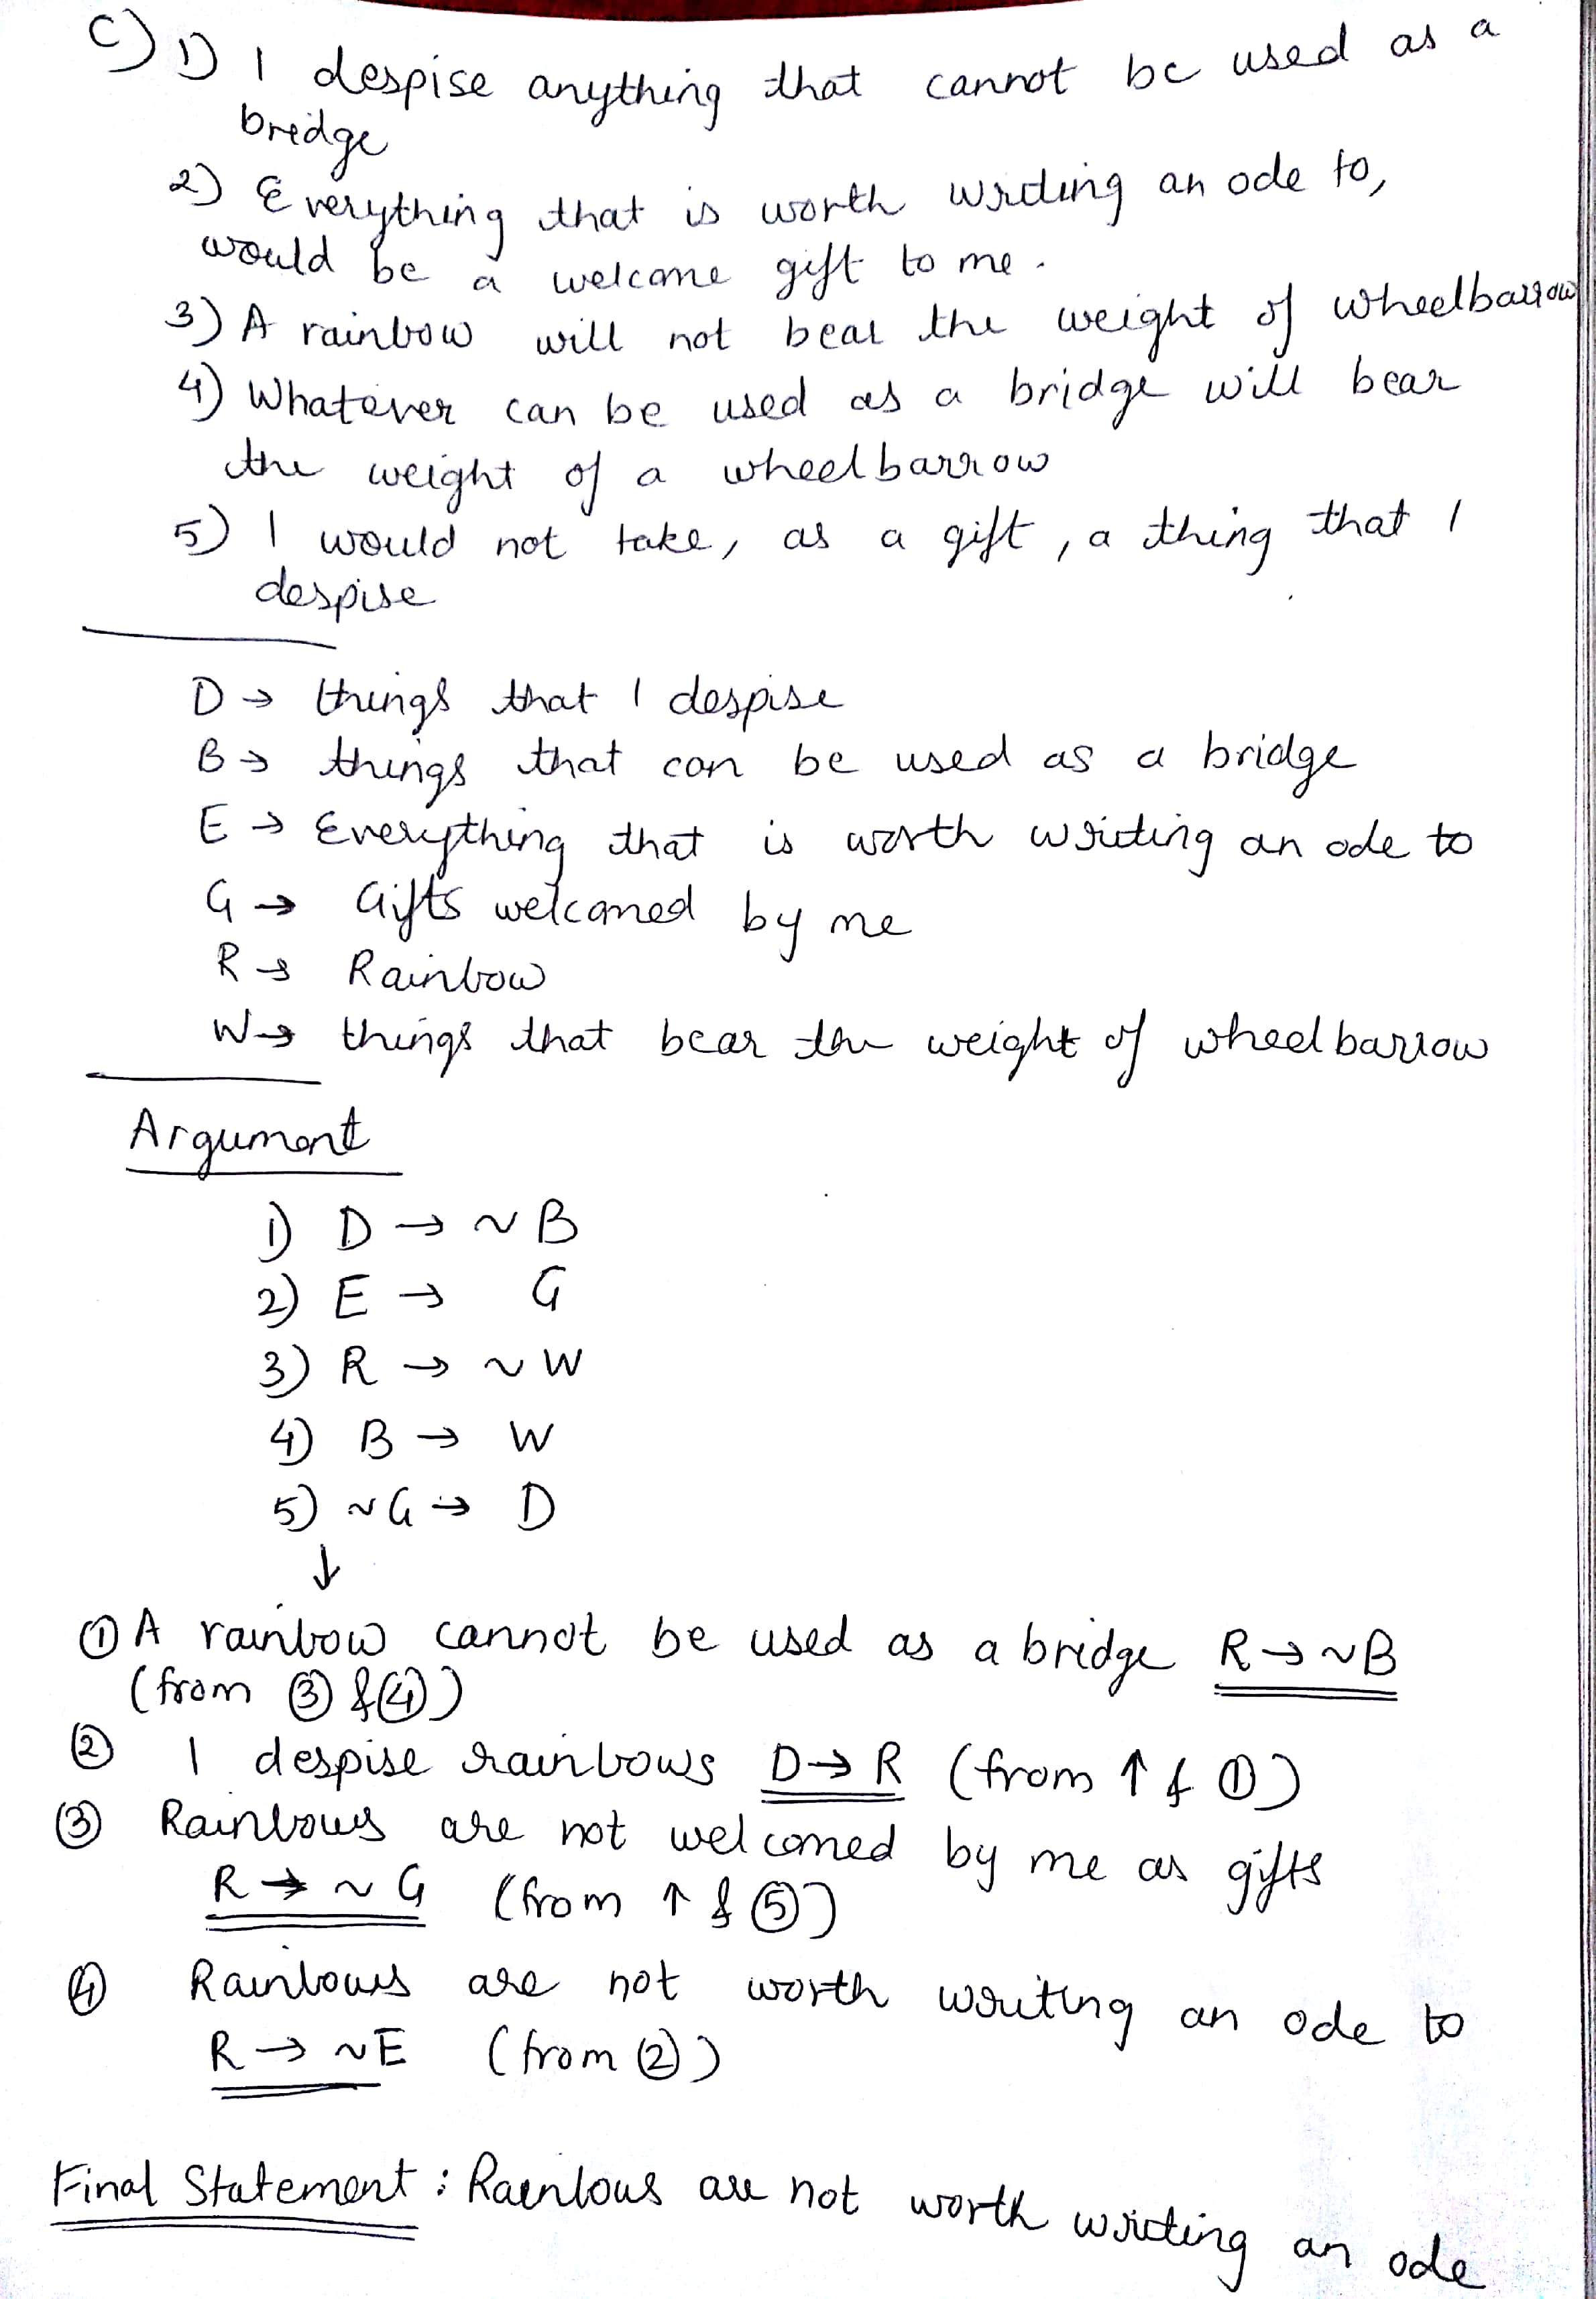 C) 1) I despise anything that cannot be used as a
bridge
2) Everything that is worth writing an ode to,
would be a welcome gift to me.
3) A rainbow will not bear the weight of wheelbarrow
4) Whatever can be used as a bridge will bear
the weight of a wheelbarrow
5) I would not take, as a gift, a thing that I
despise
D → things that I despise
B → things that can be used as a bridge
E → Everything that is worth writing an ode to
G → Gifts welcomed by me
R → Rainbow
W → things that bear the weight of wheelbarrow
Argument
1) D → ~B
2) E → G
3) R → ~W
4) B → W
5) ~G → D
↓
① A rainbow cannot be used as a bridge R → ~B
(from ③ & ④)
② I despise rainbows D → R (from ↑ & ①)
③ Rainbows are not welcomed by me as gifts
R → ~G (from ↑ & ⑤)
④ Rainbows are not worth writing an ode to
R → ~E (from ②)
Final Statement : Rainbows are not worth writing an ode